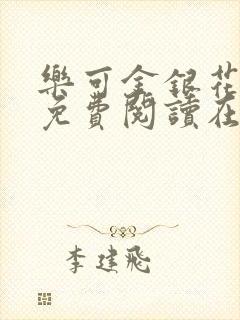 樂可金銀花
免費閱讀在
李建飛